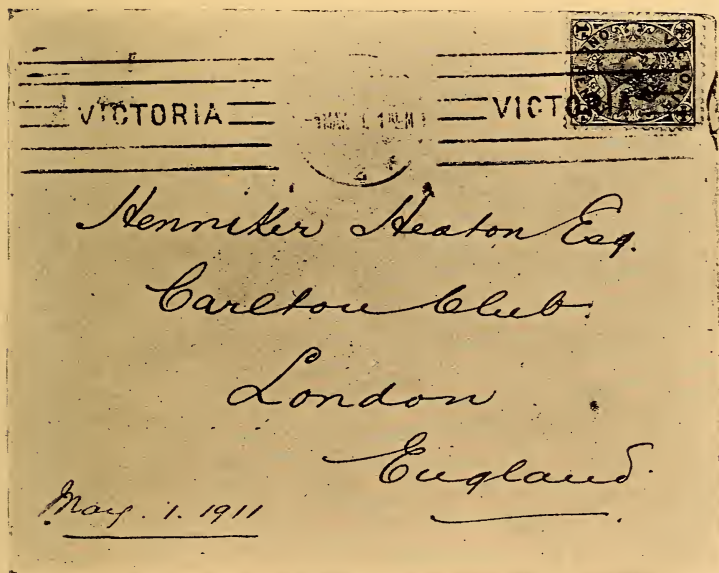 VICTORIA VICTORIA
Henniker Heaton Esq.
Carlton Club
London
England.
May. 1. 1911